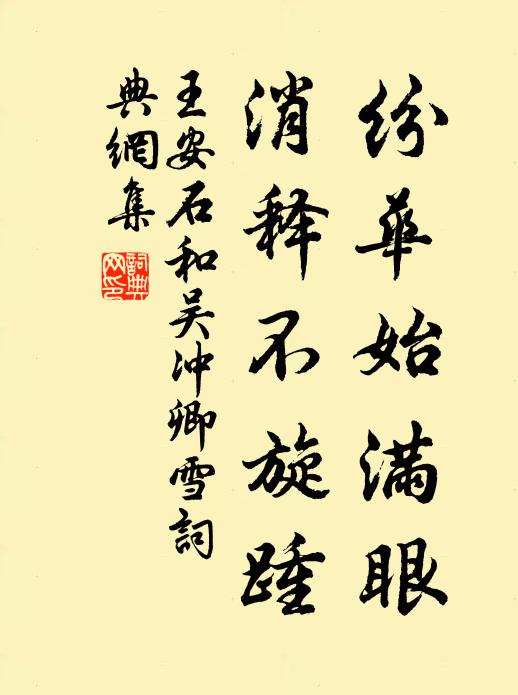 纷華始满眼
消释不旋踵
王安石和吴冲卿雪詞
典網集
詞典
网印